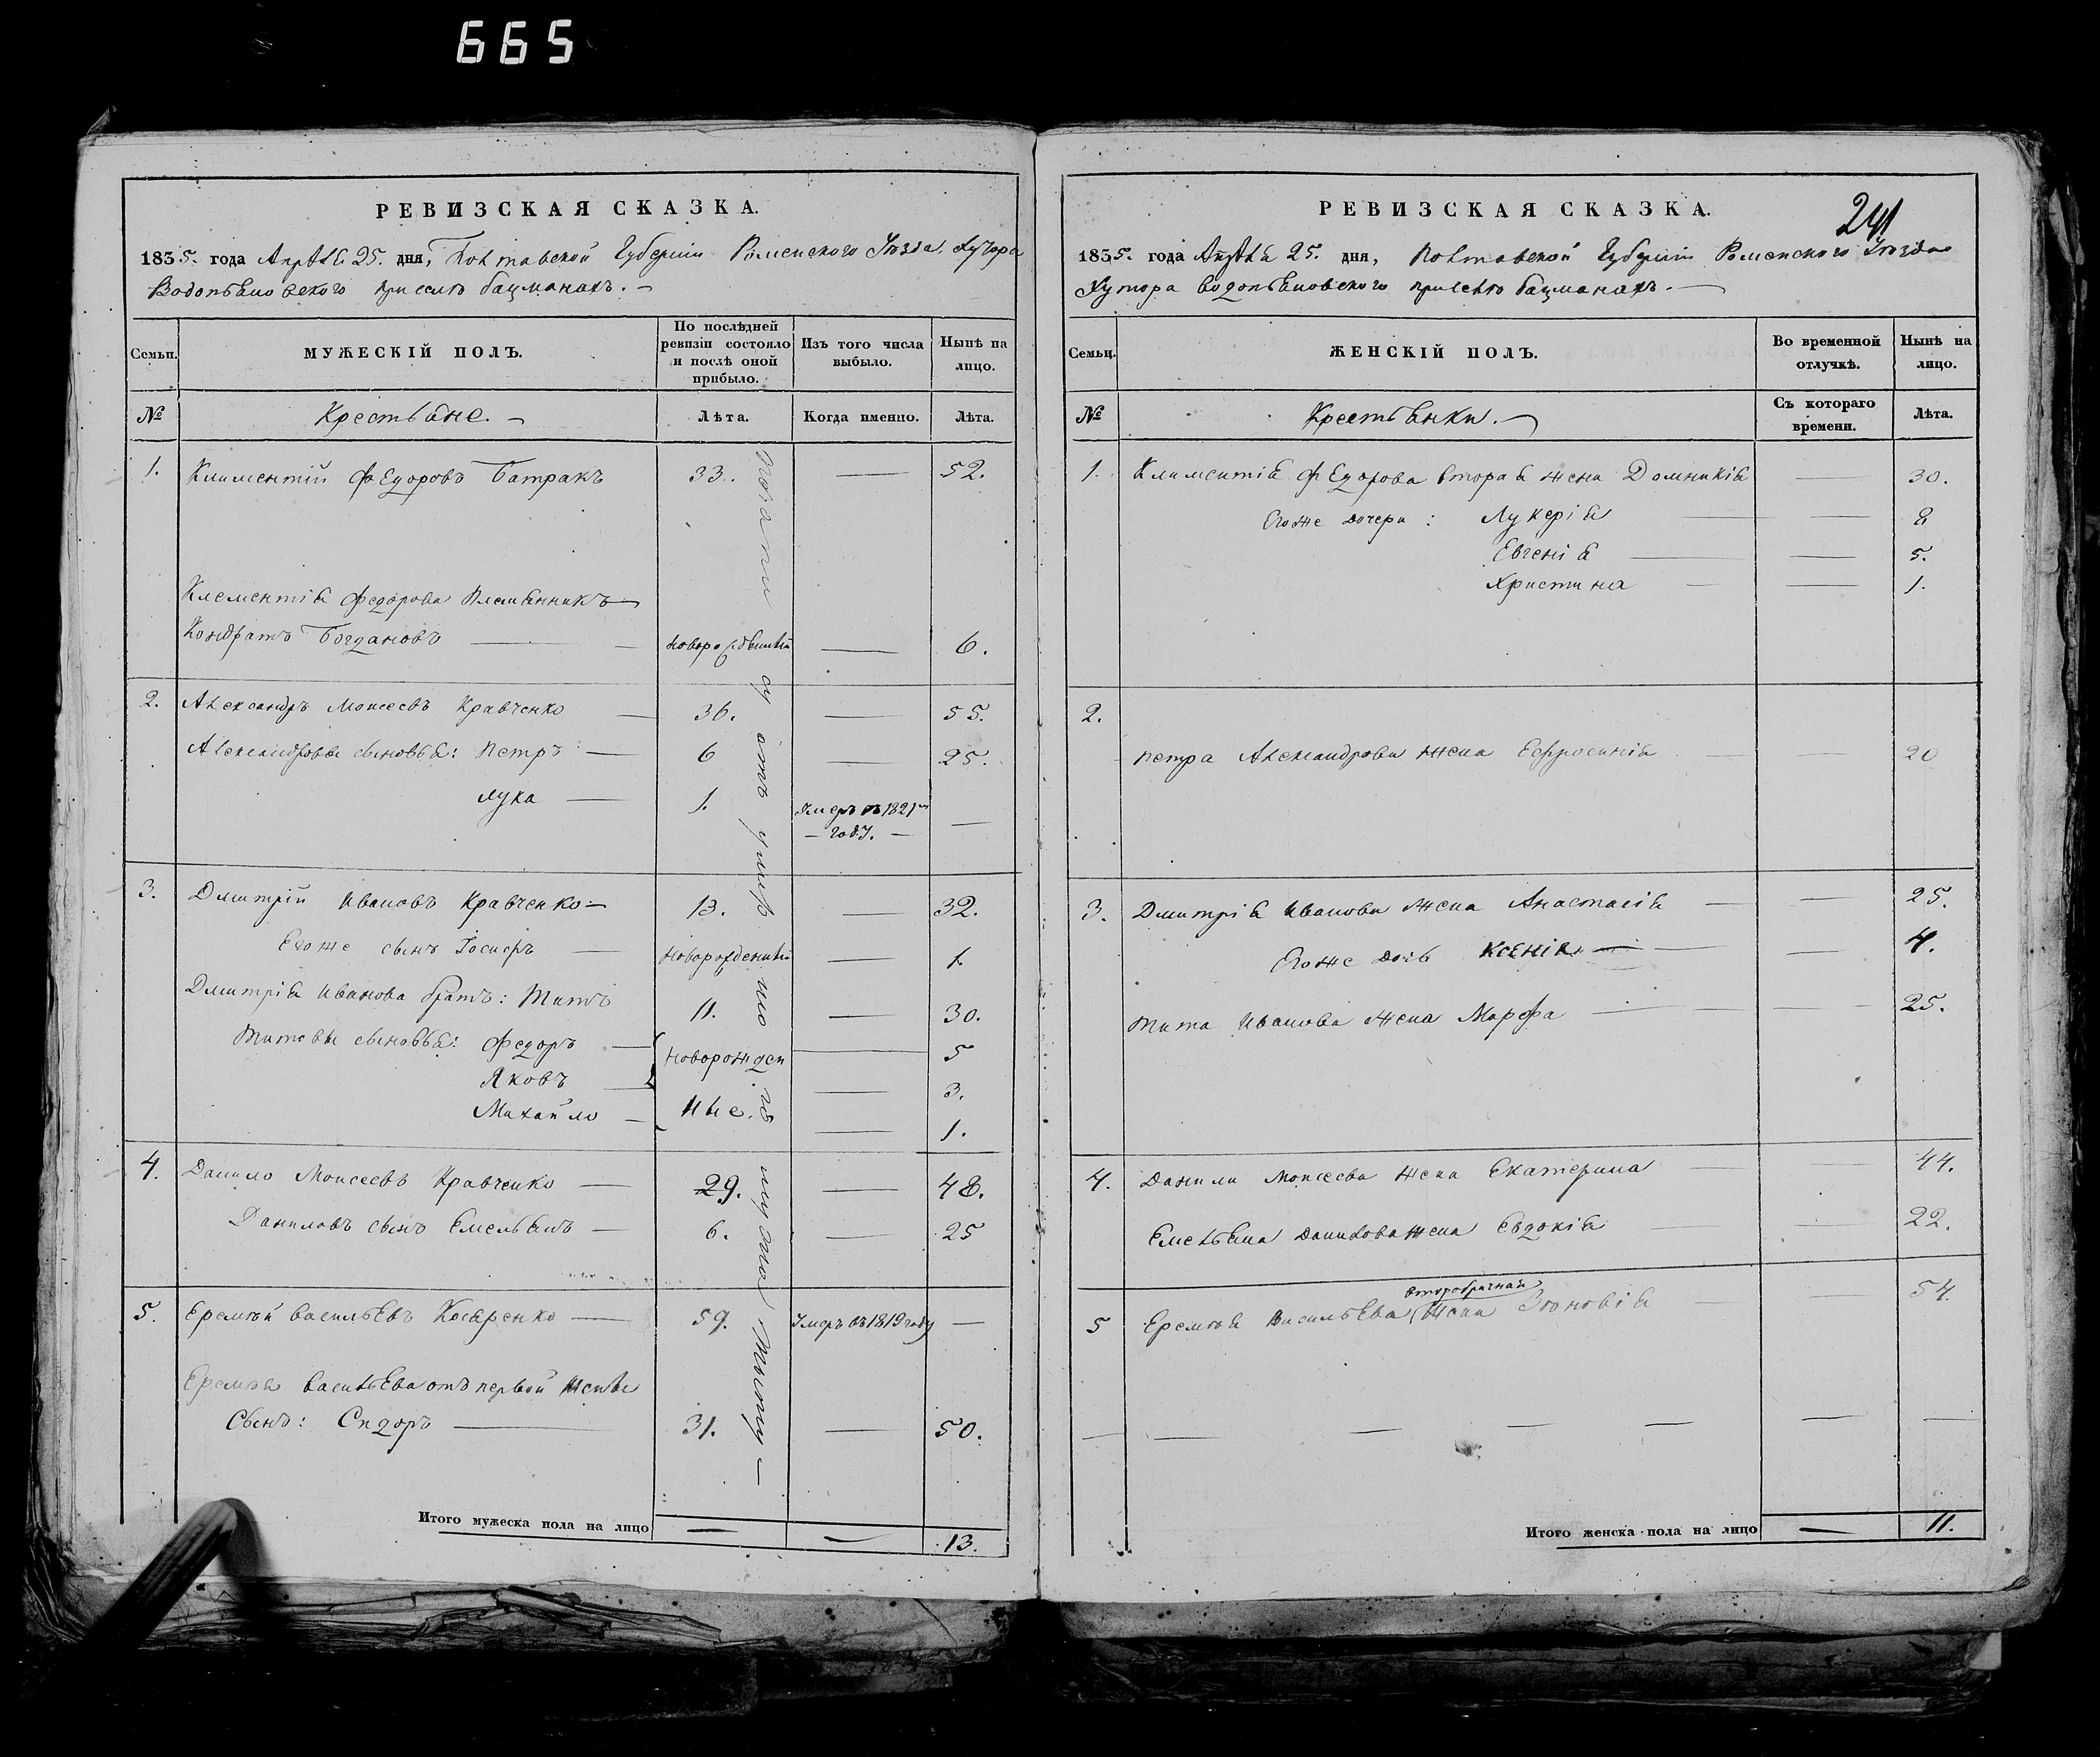 665
РЕВИЗСКАЯ СКАЗКА.
1835. года Апрѣля 25. дня, Полтавской Губерніи Роменского Уѣзда, Хутора
Водопьяновского при селѣ Бацманахъ. —
Семьи.
МУЖЕСКІЙ ПОЛЪ.
По послѣдней
ревизіи состояло
и послѣ оной
прибыло.
Изъ того числа
выбыло.
Нынѣ на
лицо.
№
Крестьяне. —
Лѣта.
Когда именно.
Лѣта.
1. Климентій Федоровъ Батракъ 33. — 52.
Клементія Федорова Племянникъ —
Кондратъ Богдановъ — новорожденный — 6.
2. Александръ Моисеевъ Кравченко — 36. — 55.
Александровы сыновья: Петръ — 6 — 25.
Лука — 1. Умеръ въ 1821мъ —
— году. —
3. Дмитрій Ивановъ Кравченко — 13. — 32.
Егоже сынъ Іосифъ — Новорожденный — 1.
Дмитрія Иванова братъ: Титъ 11. — 30.
Титовы сыновья: Федоръ — новорожден — 5
Яковъ — — 3.
Михайло — ные. — 1.
4. Данило Моисеевъ Кравченко — 29. — 48.
Даниловъ сынъ Емельянъ — 6. — 25
5. Еремѣй Васильевъ Косаренко — 59. Умеръ въ 1819 году —
Еремѣя Васильева отъ первой жены
Сынъ: Сидоръ — 31. — 50.
Итого мужеска пола на лицо — — 13.
241
РЕВИЗСКАЯ СКАЗКА.
1835. года Апрѣля 25. дня, Полтавской Губерніи Роменского Уѣзда
Хутора Водопьяновского при селѣ Бацманахъ. —
Семьи.
ЖЕНСКІЙ ПОЛЪ.
Во временной
отлучкѣ.
Нынѣ на
лицо.
№
Крестьянки. —
Съ котораго
времени.
Лѣта.
1. Климентія Федорова вторая жена Домникія — 30.
Егоже дочери: Лукерія — —
Евгенія — — 5.
Христина — — 1.
2.
Петра Александрова жена Ефросинія — — 20
3. Дмитрія Иванова жена Анастасія — — 25.
Егоже дочь Ксенія — — 4.
Тита Иванова жена Марфа — — 25.
4. Данила Моисеева жена Екатерина — — 44.
Емельяна Данилова жена Евдокія — — 22.
второбрачная
5 Еремѣя Васильева жена Зѣновія — — 54.
— — — — — — —
Итого женска пола на лицо — 11.